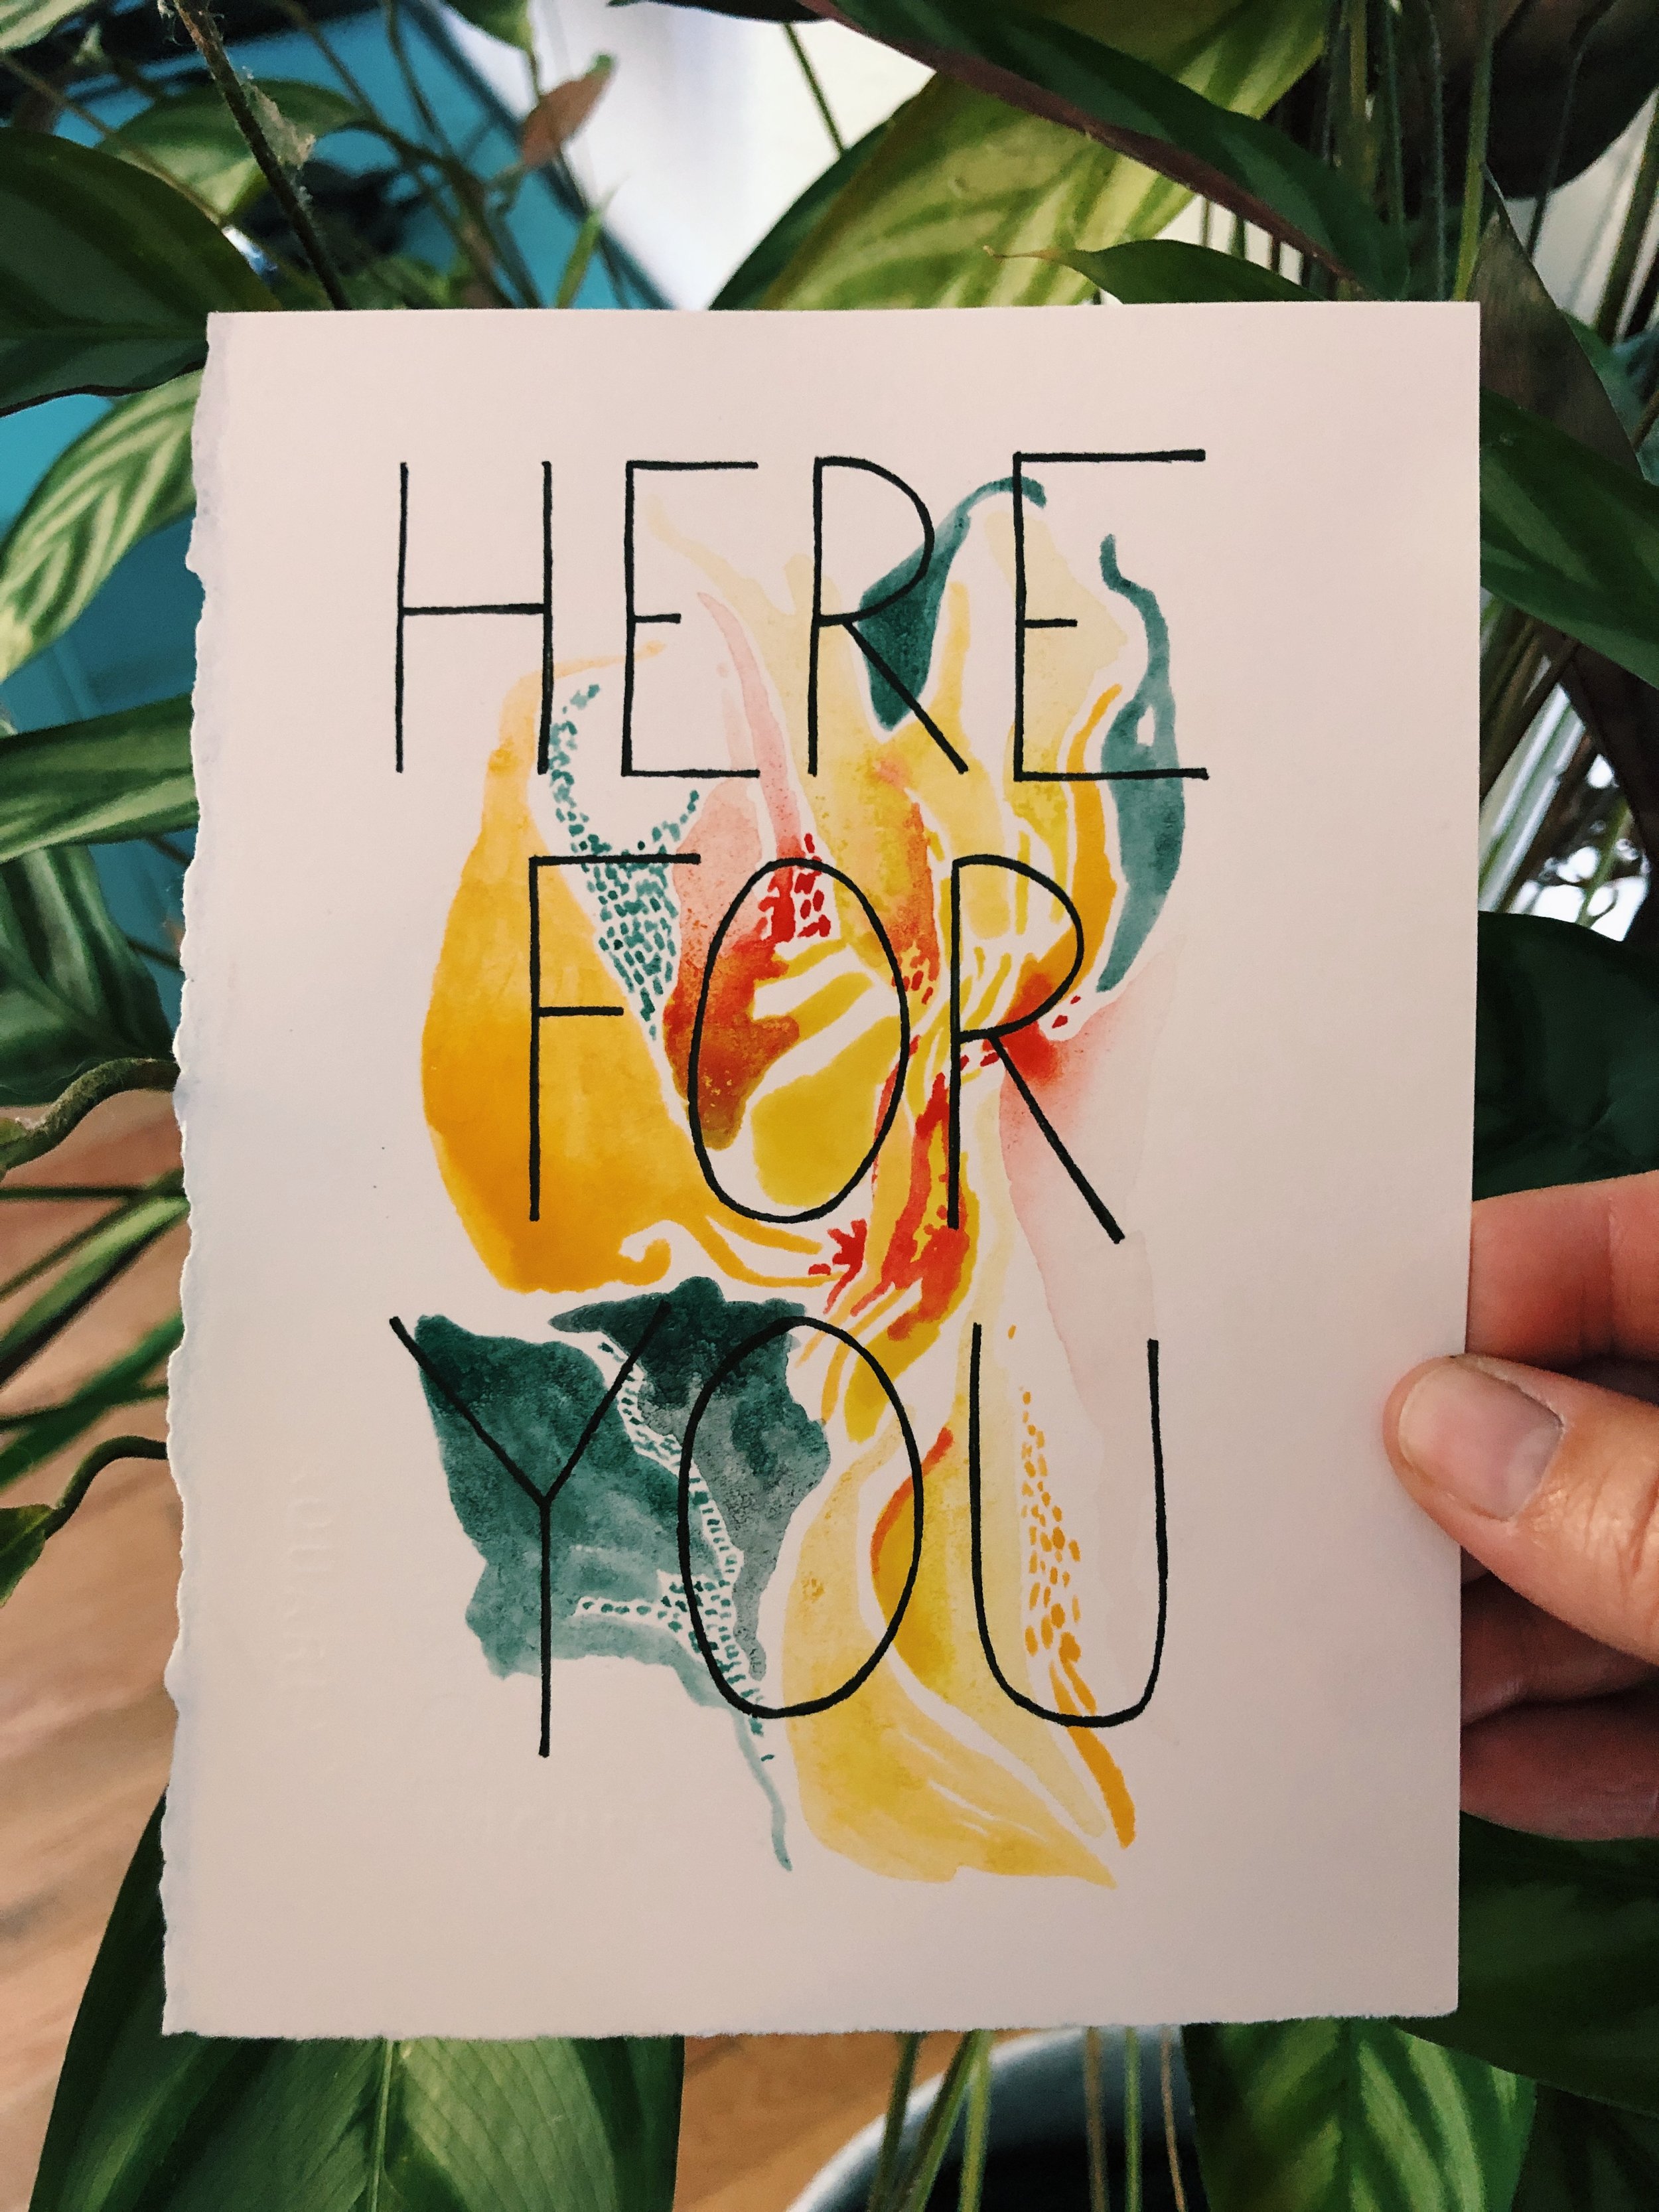 HERE
FOR
YOU